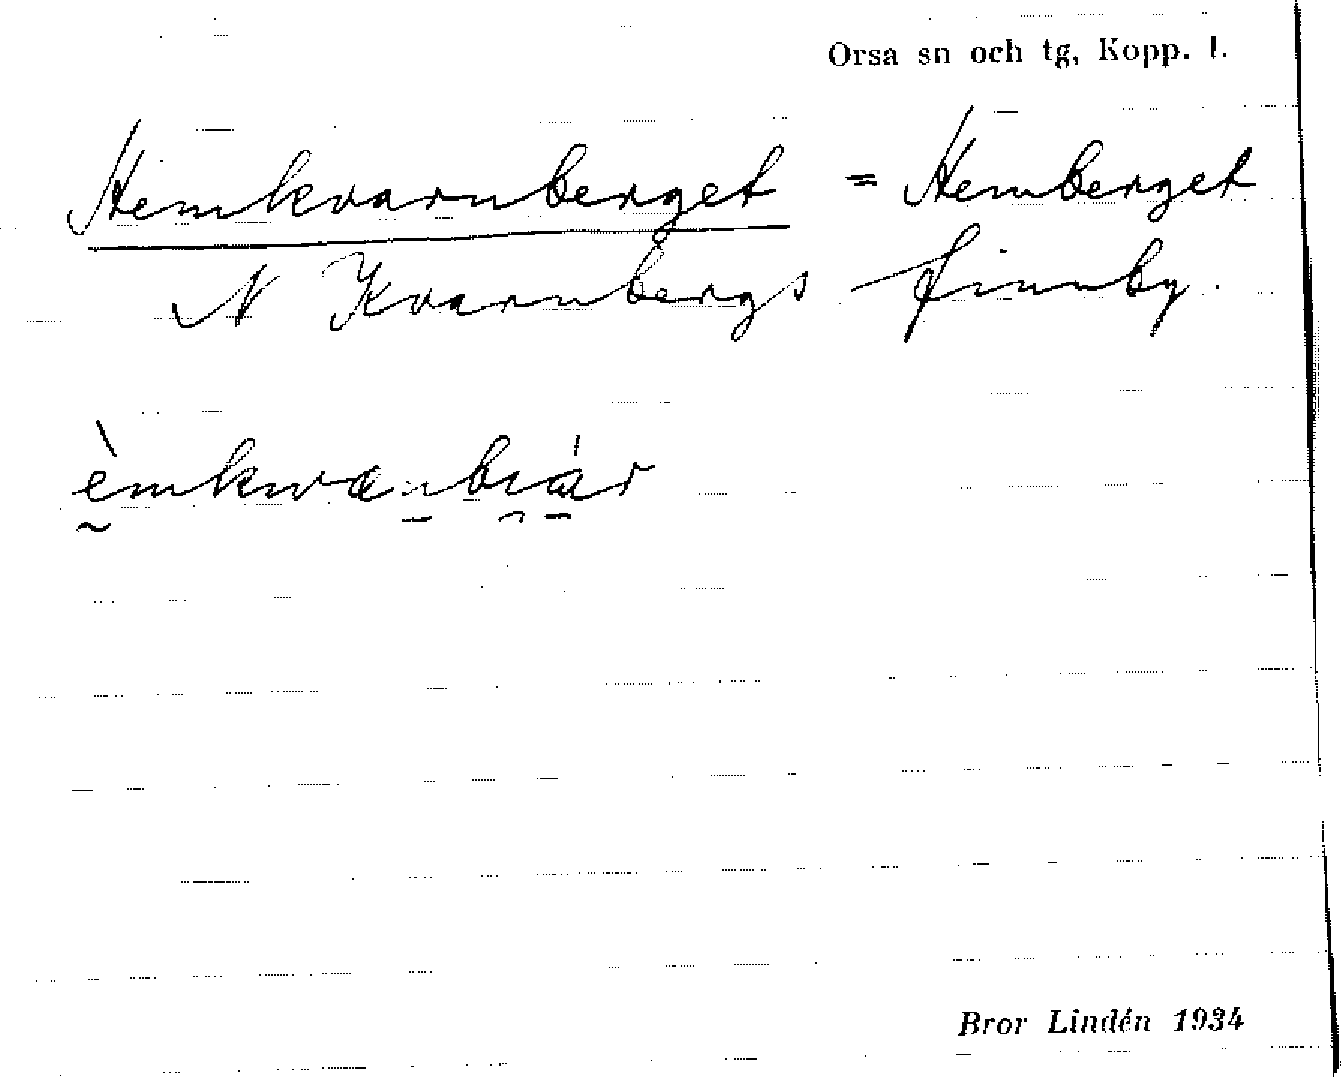 Orsa sn och tg, Kopp. l.
Hemkvarnberget = Hemberget
N Kvarnbergs finnby.
èmkwænbiár
Bror Lindén 1934